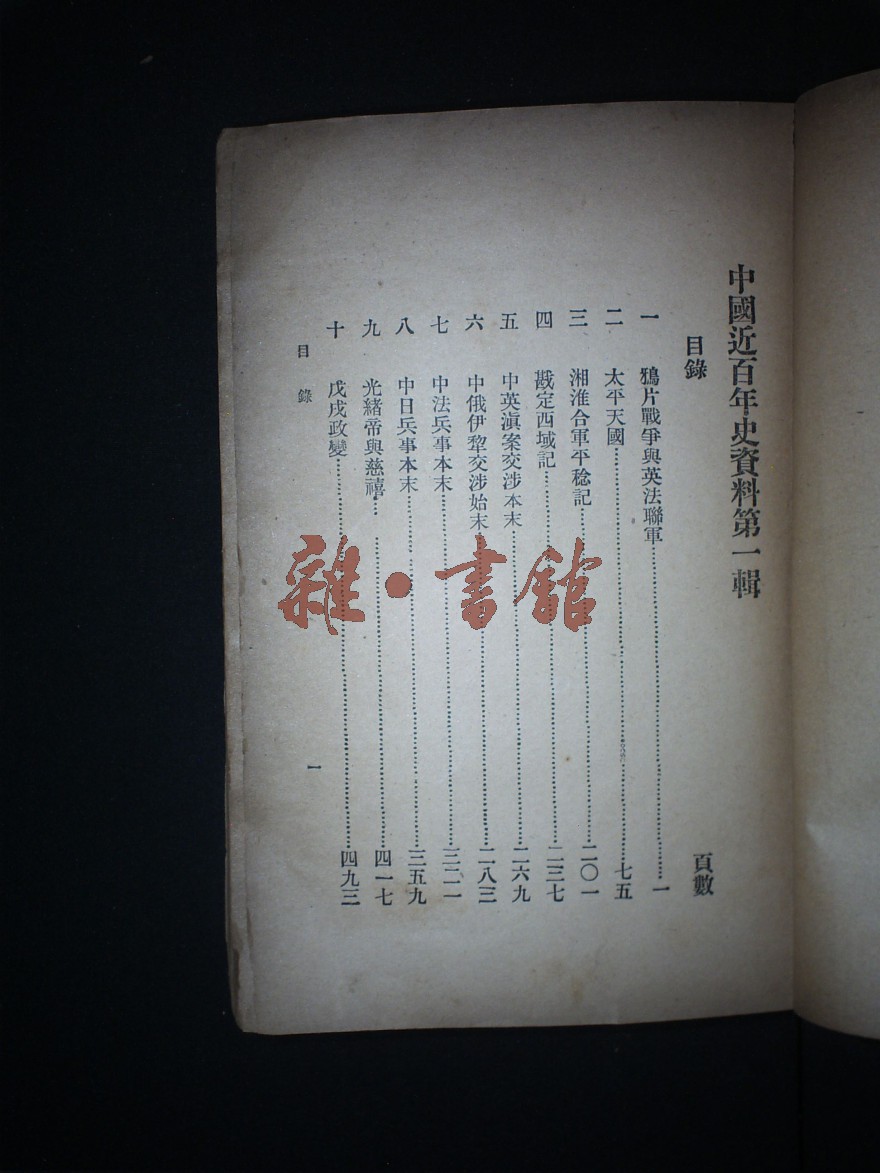 中國近百年史資料第一輯
目錄 頁數
一 鴉片戰爭與英法聯軍 一
二 太平天國 七五
三 湘淮合軍平稔記 二〇一
四 戡定西域記 二三七
五 中英滇案交涉本末 二六九
六 中俄伊犂交涉始末 二八三
七 中法兵事本末 三二一
八 中日兵事本末 三五九
九 光緒帝與慈禧 四一七
十 戊戌政變 四九三
目錄 一
雜·書館